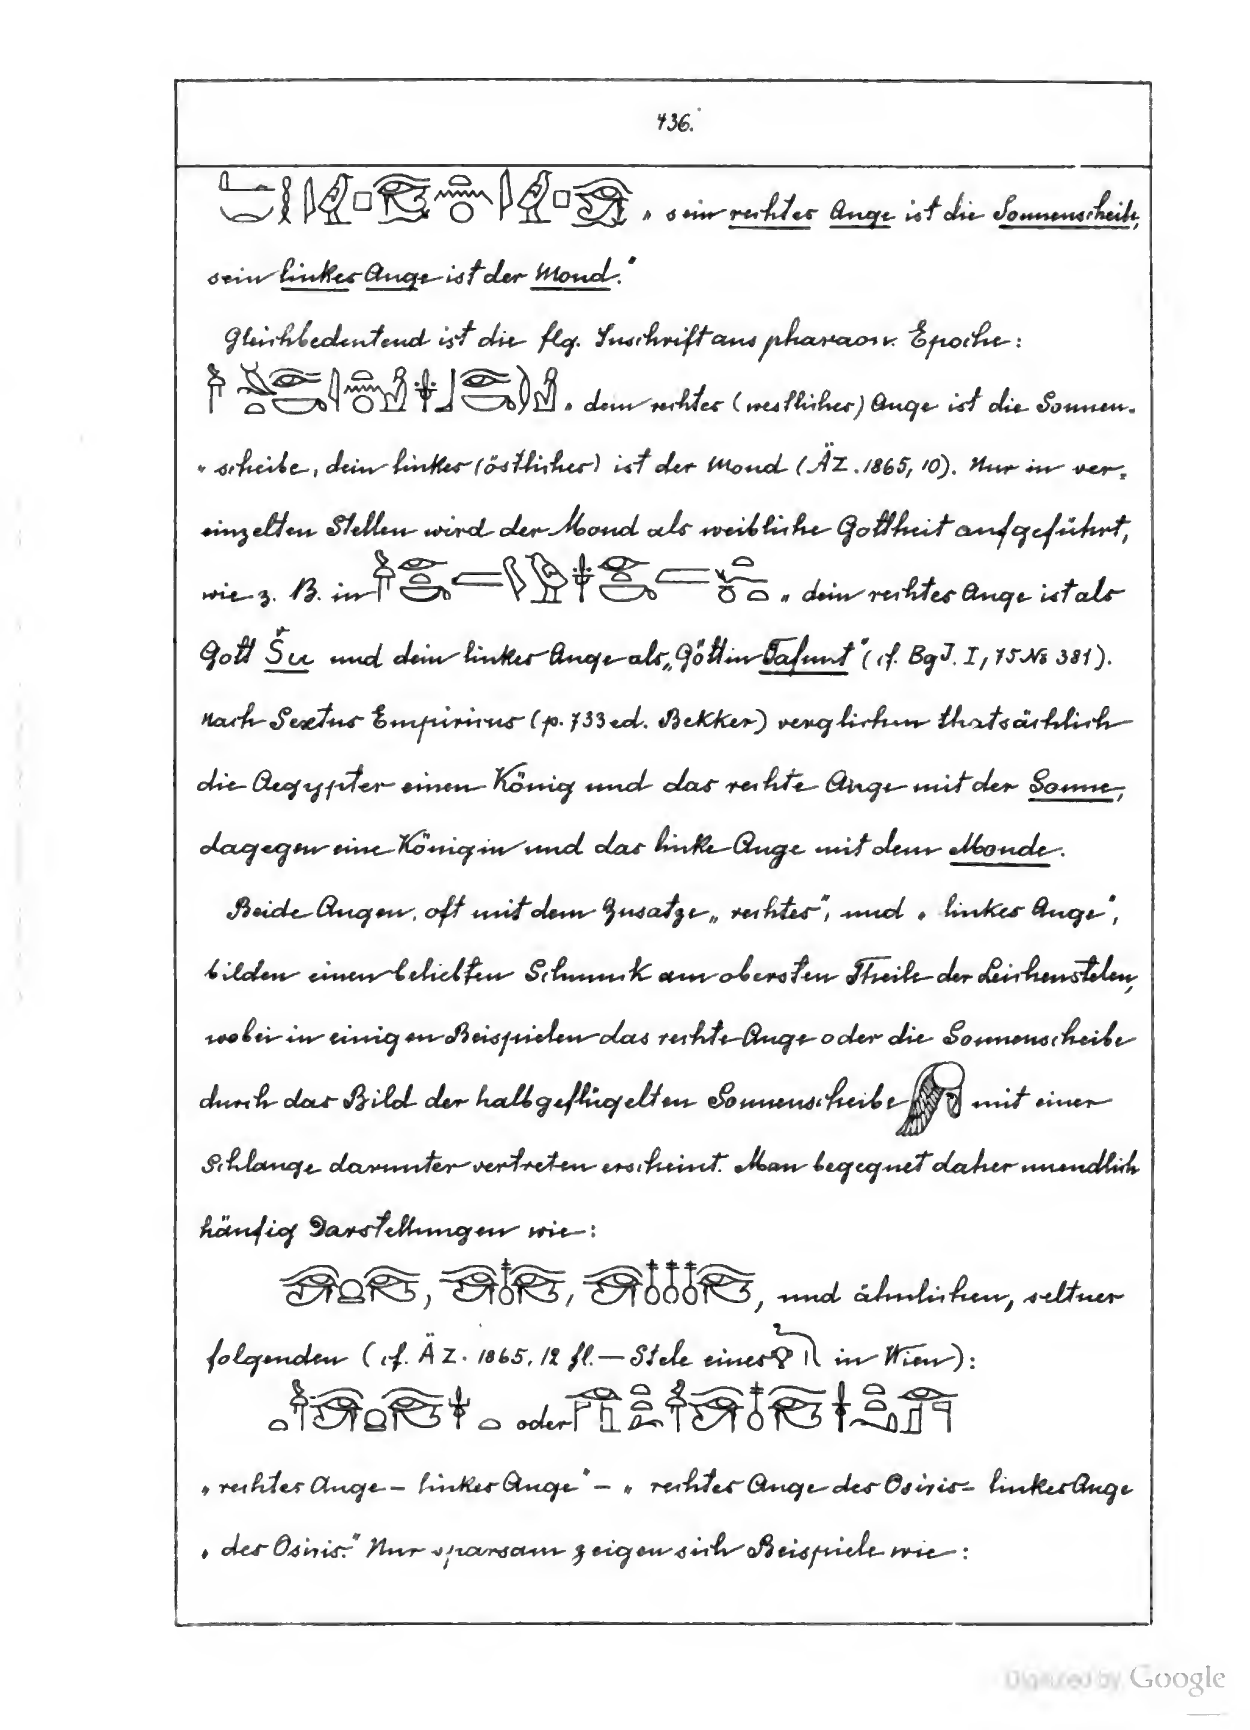 436.
„sein rechtes Auge ist die Sonnenscheibe,
sein linkes Auge ist der Mond.“
Gleichbedeutend ist die flg. Inschrift aus pharaon. Epoche:
„dein rechtes (westliches) Auge ist die Sonnen-
„scheibe, dein linkes (östliches) ist der Mond (ÄZ. 1865, 10). Nur in ver-
einzelten Stellen wird der Mond als weibliche Gottheit aufgeführt,
wie z. B. in „dein rechtes Auge ist als
Gott Šu und dein linkes Auge als „Göttin Tafunt“ (cf. BgJ. I, 75 No 381).
Nach Sextus Empiricus (p. 733 ed. Bekker) verglichen thatsächlich
die Aegypter einen König und das rechte Auge mit der Sonne,
dagegen eine Königin und das linke Auge mit dem Monde.
Beide Augen, oft mit dem Zusatze „rechtes“, und „linkes Auge“,
bilden einen beliebten Schmuck am obersten Theile der Leichenstelen,
wobei in einigen Beispielen das rechte Auge oder die Sonnenscheibe
durch das Bild der halbgeflügelten Sonnenscheibe mit einer
Schlange darunter vertreten erscheint. Man begegnet daher unendlich
häufig Darstellungen wie:
, , , und ähnlichen, seltner
folgenden (cf. ÄZ. 1865, 12 fl. — Stele eines in Wien):
oder
„rechtes Auge – linkes Auge“ – „rechtes Auge des Osiris – linkes Auge
„des Osiris.“ Nur sparsam zeigen sich Beispiele wie:
Digitized by Google